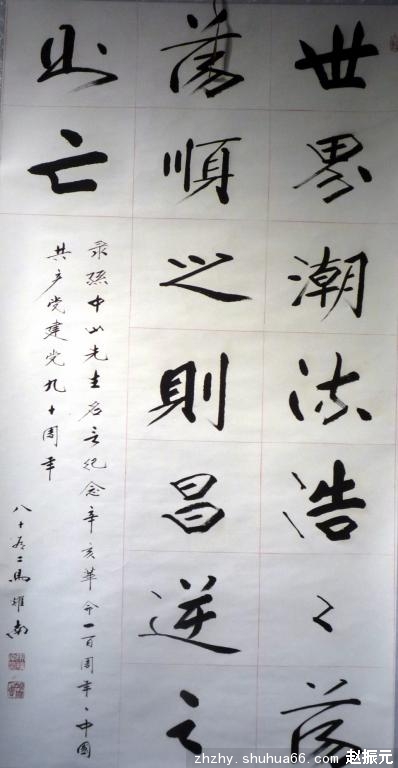 世界潮流浩々荡
荡順之則昌逆之
则亡
录孫中山先生名言纪念辛亥革命一百周年、中国
共产党建党九十周年
八十有二馬耀南
zhzhy.shuhua66.com 赵振元